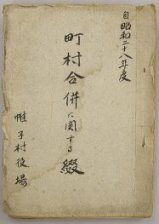 自昭和二十八年度
町村合併に関する綴
帷子村役場